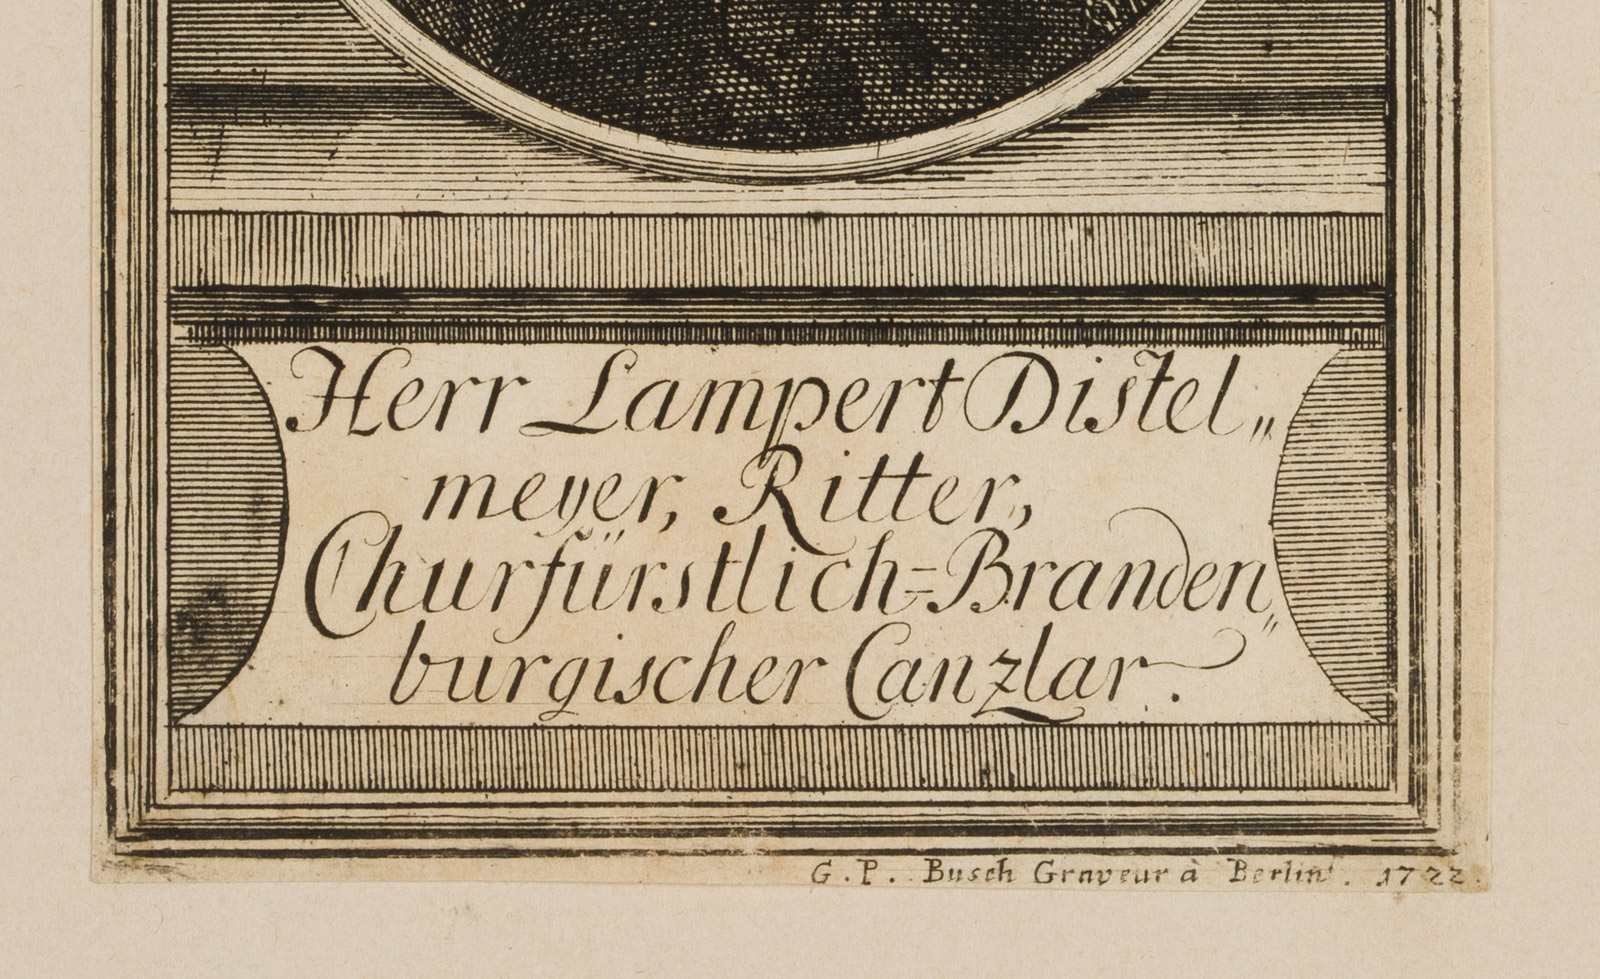 Herr Lampert Distel„
meyer, Ritter,
Churfürstlich-Branden„
burgischer Canzlar.
G. P. Busch Graveur à Berlin. 1722.